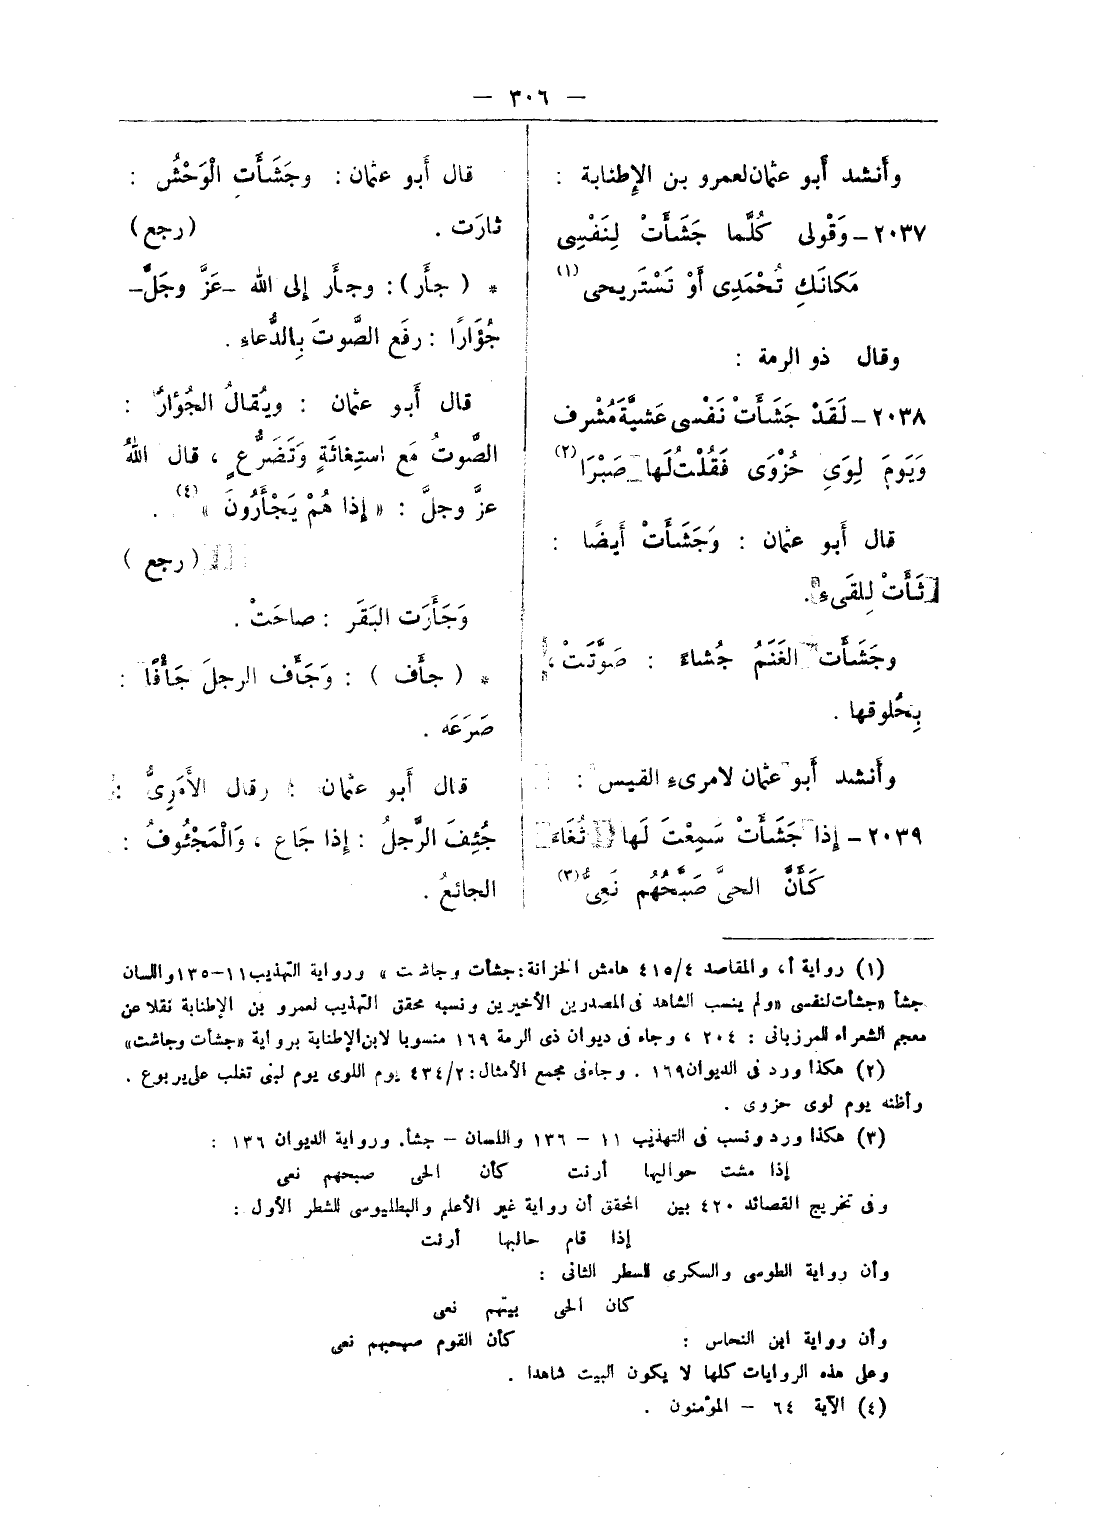 — ٣٠٦ —
وأنشد أبو عثمان لعمرو بن الإطنابة :
٢٠٣٧ – وَقْولى كُلَّما جَشَأَتْ لِنَفْسِى
مَكانَكِ تُحْمَدِى أَوْ تَسْتَريحى (١)
وقال ذو الرمة :
٢٠٣٨ – لَقَدْ جَشَأَتْ نَفْسِى عَشِيَّةَ مُشْرِف
وَيَومَ لِوَىِ حُزْوَى فَقُلْتُ لَها صَبْرَا (٢)
قال أبو عثمان : وَجَشَأَتْ أَيضًا :
ثَأَتْ لِلقَىءِ.
وجَشَأَت الغَنَمُ جُشاءً : صَوَّتَتْ ،
بِحُلوقها .
وأنشد أبو عثمان لامرىء القيس :
٢٠٣٩ – إِذا جَشَأَتْ سَمِعْتَ لَها ثُغَاءَ
كَأَنَّ الحىَّ صَبَّحُهُم نَعِىُّ (٣)
قال أَبو عثمان : وجَشَأَتِ الْوَحْشُ :
ثارَت . (رجع)
* ( جأَر ) : وجأَر إِلى الله –عَزَّ وجَلَّ–
جُؤَارًا : رفَع الصَّوتَ بِالدُّعاءِ .
قال أَبو عثمان : ويُقالُ الجُؤارُ :
الصَّوتُ مَع استِغاثَةٍ وَتَضَرُّعٍ ، قال اللهُ
عزَّ وجلَّ : « إِذا هُمْ يَجْأَرُونَ » (٤) .
(رجع )
وَجَأَرَت البَقَر : صاحَتْ .
* ( جأَف ) : وَجَأَف الرجلَ جَأْفًا :
صَرَعَه .
قال أَبو عثمان : وقال الأَمَوِىُّ :
جُئِفَ الرَّجلُ : إِذا جَاع ، وَالْمَجْئُوفُ :
الجائعُ .
(١) رواية أ، والمقاصد ٤١٥/٤ هامش الخزانة : جشأت وجاشت » ورواية التهذيب ١١–١٣٥ واللسان
جشأ «جشأت لنفسى » ولم ينسب الشاهد فى المصدرين الأخيرين ونسبه محقق التهذيب لعمرو بن الإطنابة نقلا عن
معجم الشعراء للمرزبانى : ٢٠٤ ، وجاء فى ديوان ذى الرمة ١٦٩ منسوبا لابن الإطنابة برواية «جشأت وجاشت»
(٢) هكذا ورد فى الديوان ١٦٩ . وجاء فى مجمع الأمثال : ٤٣٤/٢ يوم اللوى يوم لبنى تغلب على يربوع .
وأظنه يوم لوى حزوى .
(٣) هكذا ورد ونسب فى التهذيب ١١ – ١٣٦ واللسان – جشأ. ورواية الديوان ١٣٦ :
إذا مشت حوالبها أرنت كأن الحى صبحهم نعى
وفى تخريج القصائد ٤٢٠ بين المحقق أن رواية غير الأعلم والبطليوسى للشطر الأول :
إذا قام حالبها أرنت
وأن رواية الطوسى والسكرى للسطر الثانى :
كان الحى بيتهم نعى
وأن رواية ابن النحاس : كأن القوم صبحهم نعى
وعلى هذه الروايات كلها لا يكون البيت شاهدا .
(٤) الآية ٦٤ – المؤمنون .